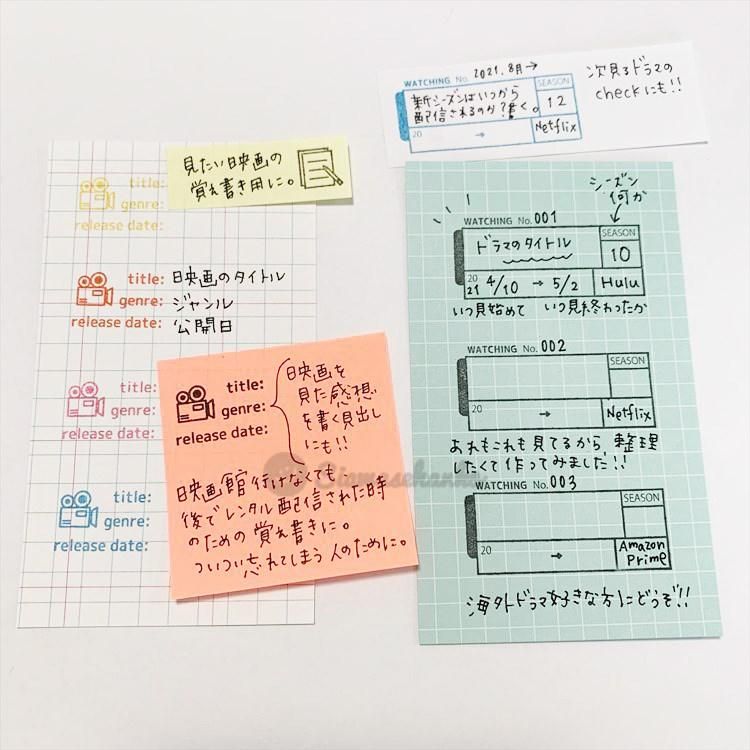 WATCHING No. 2021.8月→
新シーズンはいつから
配信されるのか?書く。
SEASON
12
20
→
Netflix
次見るドラマの
checkにも!!
見たい映画の
覚え書き用に。
title:
genre:
release date:
title: 映画のタイトル
genre: ジャンル
release date: 公開日
title:
genre:
title:
genre:
release date:
title:
genre:
release date:
映画を
見た感想
を書く見出し
にも!!
映画館行けなくても
後でレンタル配信された時
のための覚え書きに。
ついつい忘れてしまう人のために。
シーズン
何か
WATCHING No. 001
ドラマのタイトル
SEASON
10
20
21 4/10 → 5/2
Hulu
いつ見始めて いつ見終わったか
WATCHING No. 002
SEASON
20
→
Netflix
あれもこれも見てるから、整理
したくて作ってみました!!
WATCHING No. 003
SEASON
20
→
Amazon
Prime
海外ドラマ好きな方にどうぞ!!